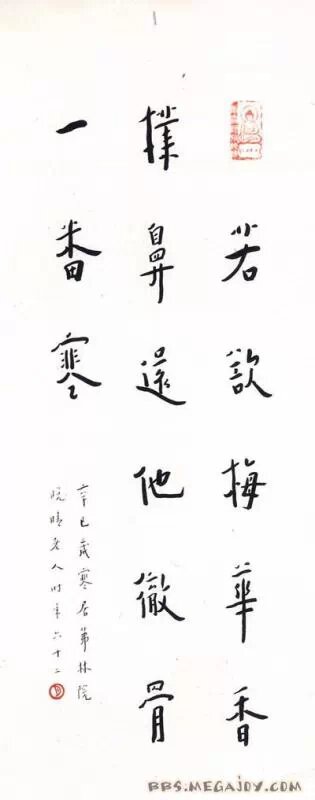 若欲梅華香
撲鼻還他徹骨
一番寒
辛巳歲寒居茀林院
晚晴老人時年六十二
BBS.MEGAJOY.COM